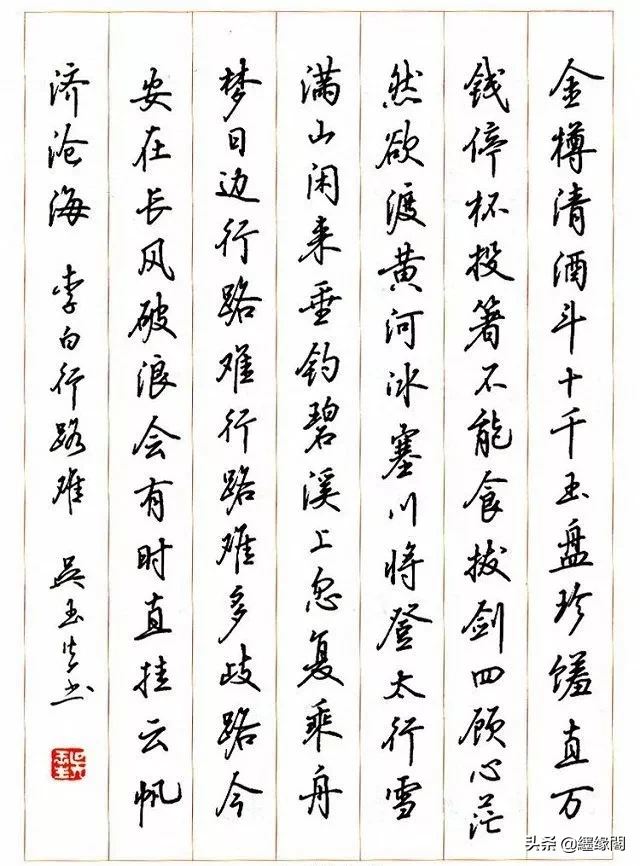 金樽清酒斗十千玉盘珍馐直万
钱停杯投箸不能食拔剑四顾心茫
然欲渡黄河冰塞川将登太行雪
满山闲来垂钓碧溪上忽复乘舟
梦日边行路难行路难多歧路今
安在长风破浪会有时直挂云帆
济沧海 李白行路难 吴玉生书
头条 @缘閣